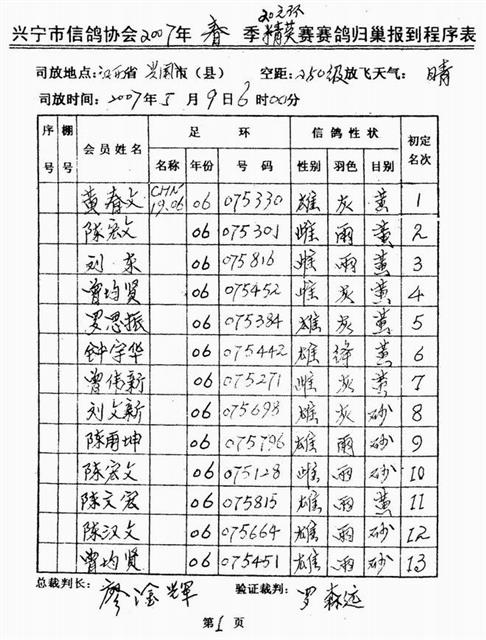 兴宁市信鸽协会2007年春季20元环精英赛赛鸽归巢报到程序表
司放地点:江西省兴国市(县) 空距:250级放飞天气:晴
司放时间:2007年5月9日6时00分
序号 棚号 会员姓名 足环 信鸽性状 初定名次
名称 年份 号码 性别 羽色 目别
黄春文 CHN19.06 06 075330 雄 灰 黄 1
陈宏文 06 075301 雌 雨 黄 2
刘东 06 075816 雌 雨 黄 3
曾均贤 06 075452 雌 灰 黄 4
罗思振 06 075384 雄 灰 黄 5
钟宇华 06 075442 雄 绛 黄 6
曾伟新 06 075271 雌 灰 黄 7
刘文新 06 075698 雄 灰 砂 8
陈雨坤 06 075796 雄 雨 砂 9
陈宏文 06 075128 雌 雨 砂 10
陈文宏 06 075815 雄 雨 黄 11
陈汉文 06 075664 雄 雨 砂 12
曾均贤 06 075451 雄 雨 砂 13
总裁判长:廖淦辉 验证裁判:罗森远
第1页